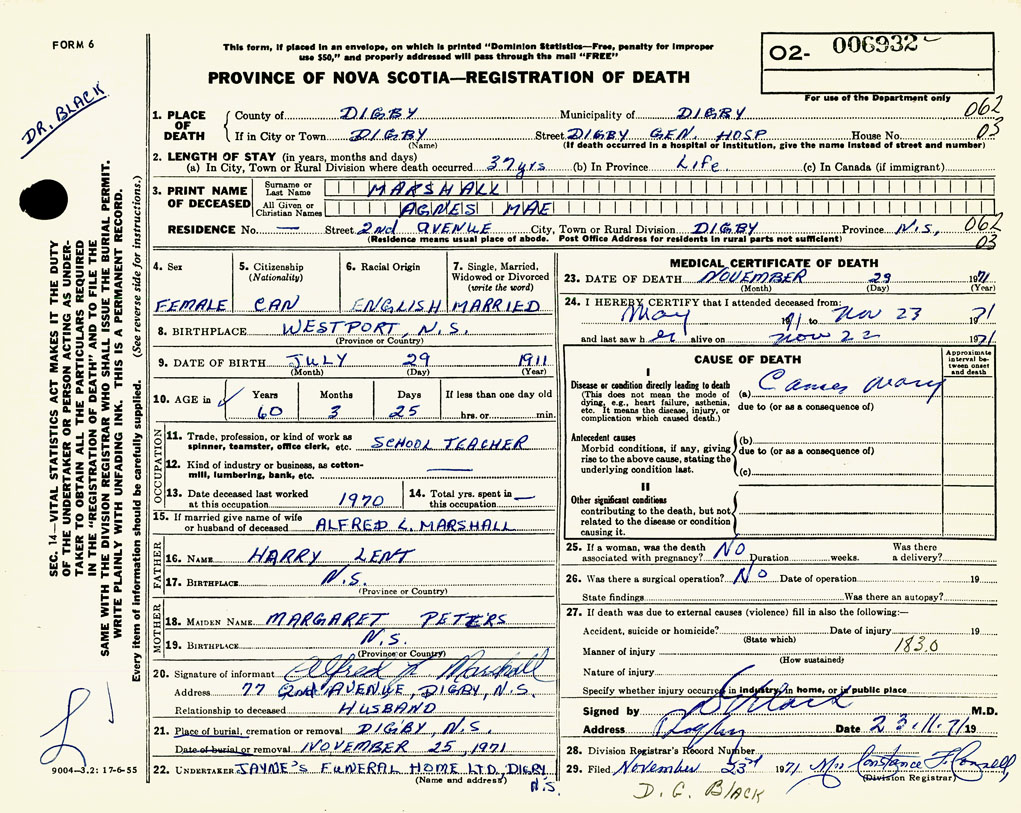 FORM 6
This form, if placed in an envelope, on which is printed "Dominion Statistics—Free, penalty for improper
use $50," and properly addressed will pass through the mail "FREE"
PROVINCE OF NOVA SCOTIA—REGISTRATION OF DEATH
02- 006932
For use of the Department only
DR. BLACK
062
03
1. PLACE OF DEATH { County of DIGBY Municipality of DIGBY
If in City or Town DIGBY Street DIGBY GEN. HOSP House No.
(Name) (If death occurred in a hospital or institution, give the name instead of street and number)
2. LENGTH OF STAY (in years, months and days)
(a) In City, Town or Rural Division where death occurred 37 yrs (b) In Province LIFE (c) In Canada (if immigrant)
3. PRINT NAME OF DECEASED
Surname or Last Name MARSHALL
All Given or Christian Names AGNES MAE
RESIDENCE No. — Street 2nd AVENUE City, Town or Rural Division DIGBY Province N.S. 062
03
(Residence means usual place of abode. Post Office Address for residents in rural parts not sufficient)
4. Sex FEMALE
5. Citizenship (Nationality) CAN
6. Racial Origin ENGLISH
7. Single, Married, Widowed or Divorced (write the word) MARRIED
8. BIRTHPLACE WESTPORT, N.S.
(Province or Country)
9. DATE OF BIRTH JULY 29 1911
(Month) (Day) (Year)
10. AGE in Years Months Days If less than one day old
60 3 25 hrs. or min.
OCCUPATION
11. Trade, profession, or kind of work as
spinner, teamster, office clerk, etc. SCHOOL TEACHER
12. Kind of industry or business, as cotton-
mill, lumbering, bank, etc. —
13. Date deceased last worked
at this occupation 1970
14. Total yrs. spent in
this occupation —
15. If married give name of wife
or husband of deceased ALFRED L. MARSHALL
FATHER
16. NAME HARRY LENT
17. BIRTHPLACE N.S.
(Province or Country)
MOTHER
18. MAIDEN NAME MARGARET PETERS
19. BIRTHPLACE N.S.
(Province or Country)
20. Signature of informant Alfred L. Marshall
Address 77 2nd AVENUE, DIGBY, N.S.
Relationship to deceased HUSBAND
21. Place of burial, cremation or removal DIGBY, N.S.
Date of burial or removal NOVEMBER 25, 1971
22. UNDERTAKER JAYNE'S FUNERAL HOME LTD, DIGBY
(Name and address) N.S.
MEDICAL CERTIFICATE OF DEATH
23. DATE OF DEATH NOVEMBER 1971
(Month) (Day) (Year)
24. I HEREBY CERTIFY that I attended deceased from:
May 1971 to Nov 23 1971
and last saw her alive on Nov 22 1971
CAUSE OF DEATH
Approximate interval between onset and death
I
Disease or condition directly leading to death
(This does not mean the mode of
dying, e.g., heart failure, asthenia,
etc. It means the disease, injury, or
complication which caused death.)
(a)
due to (or as a consequence of)
Antecedent causes
Morbid conditions, if any, giving
rise to the above cause, stating the
underlying condition last.
(b)
due to (or as a consequence of)
(c)
II
Other significant conditions
contributing to the death, but not
related to the disease or condition
causing it.
25. If a woman, was the death
associated with pregnancy? NO Duration weeks. Was there
a delivery?
26. Was there a surgical operation? NO Date of operation 19
State findings Was there an autopsy?
27. If death was due to external causes (violence) fill in also the following:—
Accident, suicide or homicide? Date of injury 19
(State which)
Manner of injury 183.0
(How sustained)
Nature of injury
Specify whether injury occurred in industry, in home, or in public place
Signed by D G Black M.D.
Address Digby Date 23.11.71 19
28. Division Registrar's Record Number
29. Filed November 23rd 1971 Mrs Constance F.
(Division Registrar)
D. G. BLACK
SEC. 14—VITAL STATISTICS ACT MAKES IT THE DUTY
OF THE UNDERTAKER OR PERSON ACTING AS UNDER-
TAKER TO OBTAIN ALL THE PARTICULARS REQUIRED
IN THE "REGISTRATION OF DEATH" AND TO FILE THE
SAME WITH THE DIVISION REGISTRAR WHO SHALL ISSUE THE BURIAL PERMIT.
WRITE PLAINLY WITH UNFADING INK. THIS IS A PERMANENT RECORD.
Every item of information should be carefully supplied. (See reverse side for instructions.)
9004—3.2: 17-6-55